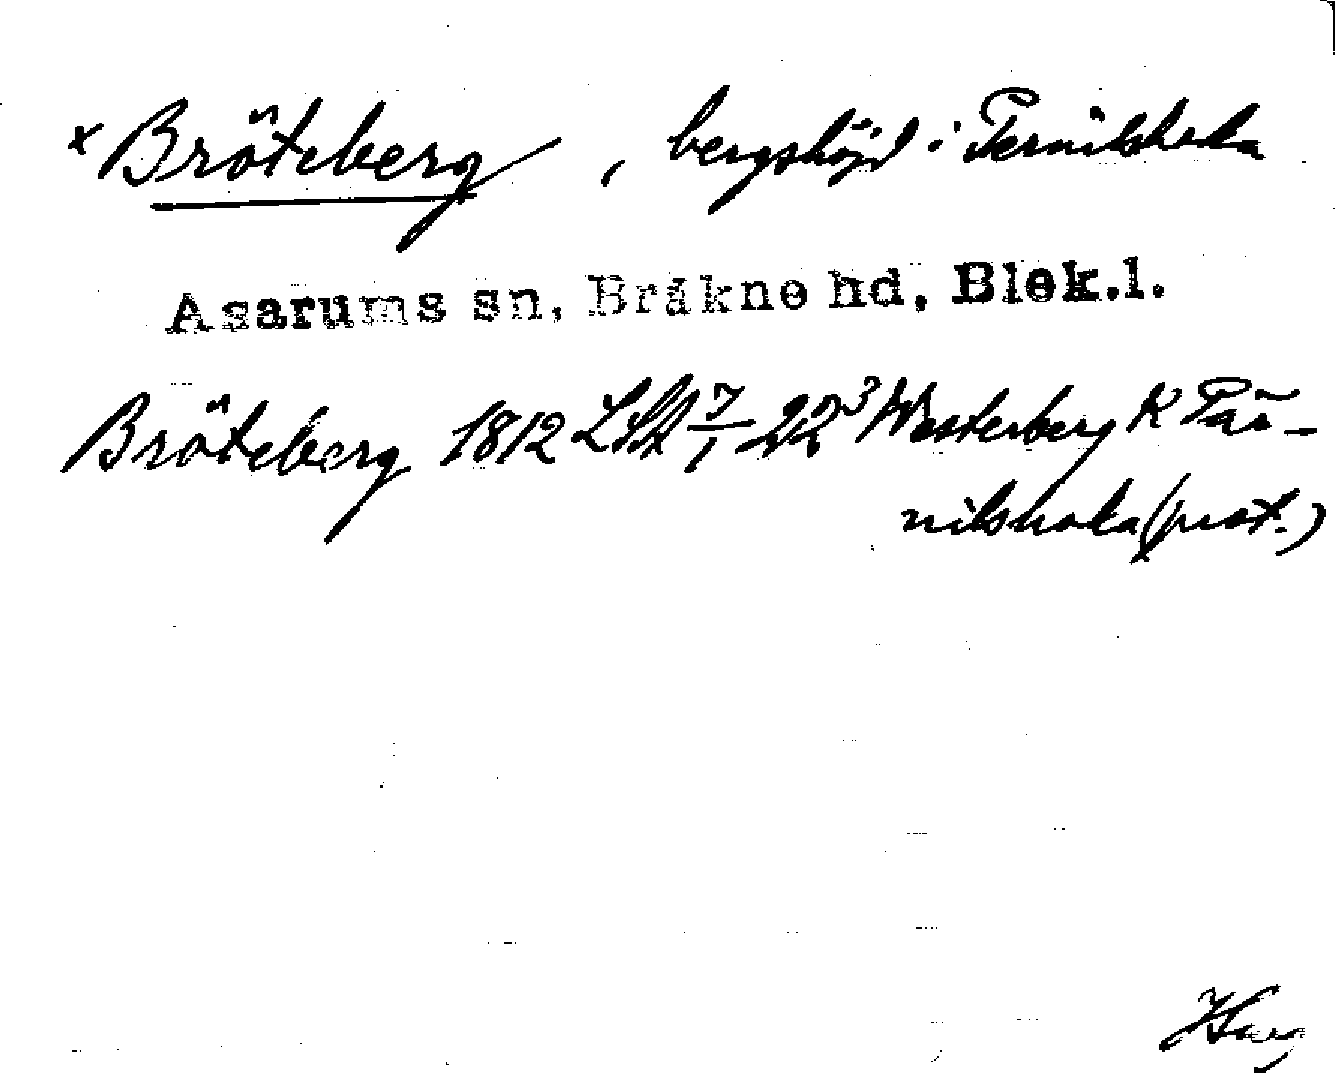 x Bröteberg, bergshöjd i Pernilsheda
Asarums sn, Bräkne hd, Blek.l.
Bröteberg 1812 LSA 7/1 22³ Westerberg K Pär-
nilshoka (prot.)